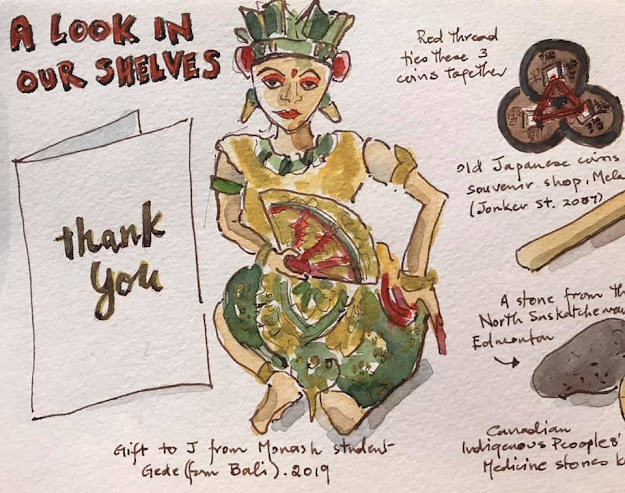 A LOOK IN
OUR SHELVES
thank
you
Red thread
ties these 3
coins together
Old Japanese coins
souvenir shop, Mela
(Jonker St. 2007)
A stone from th
North Saskatchewa
Edmonton
Canadian
Indigenous Peoples'
Medicine stones k
Gift to J from Monash student
Gede (from Bali). 2019